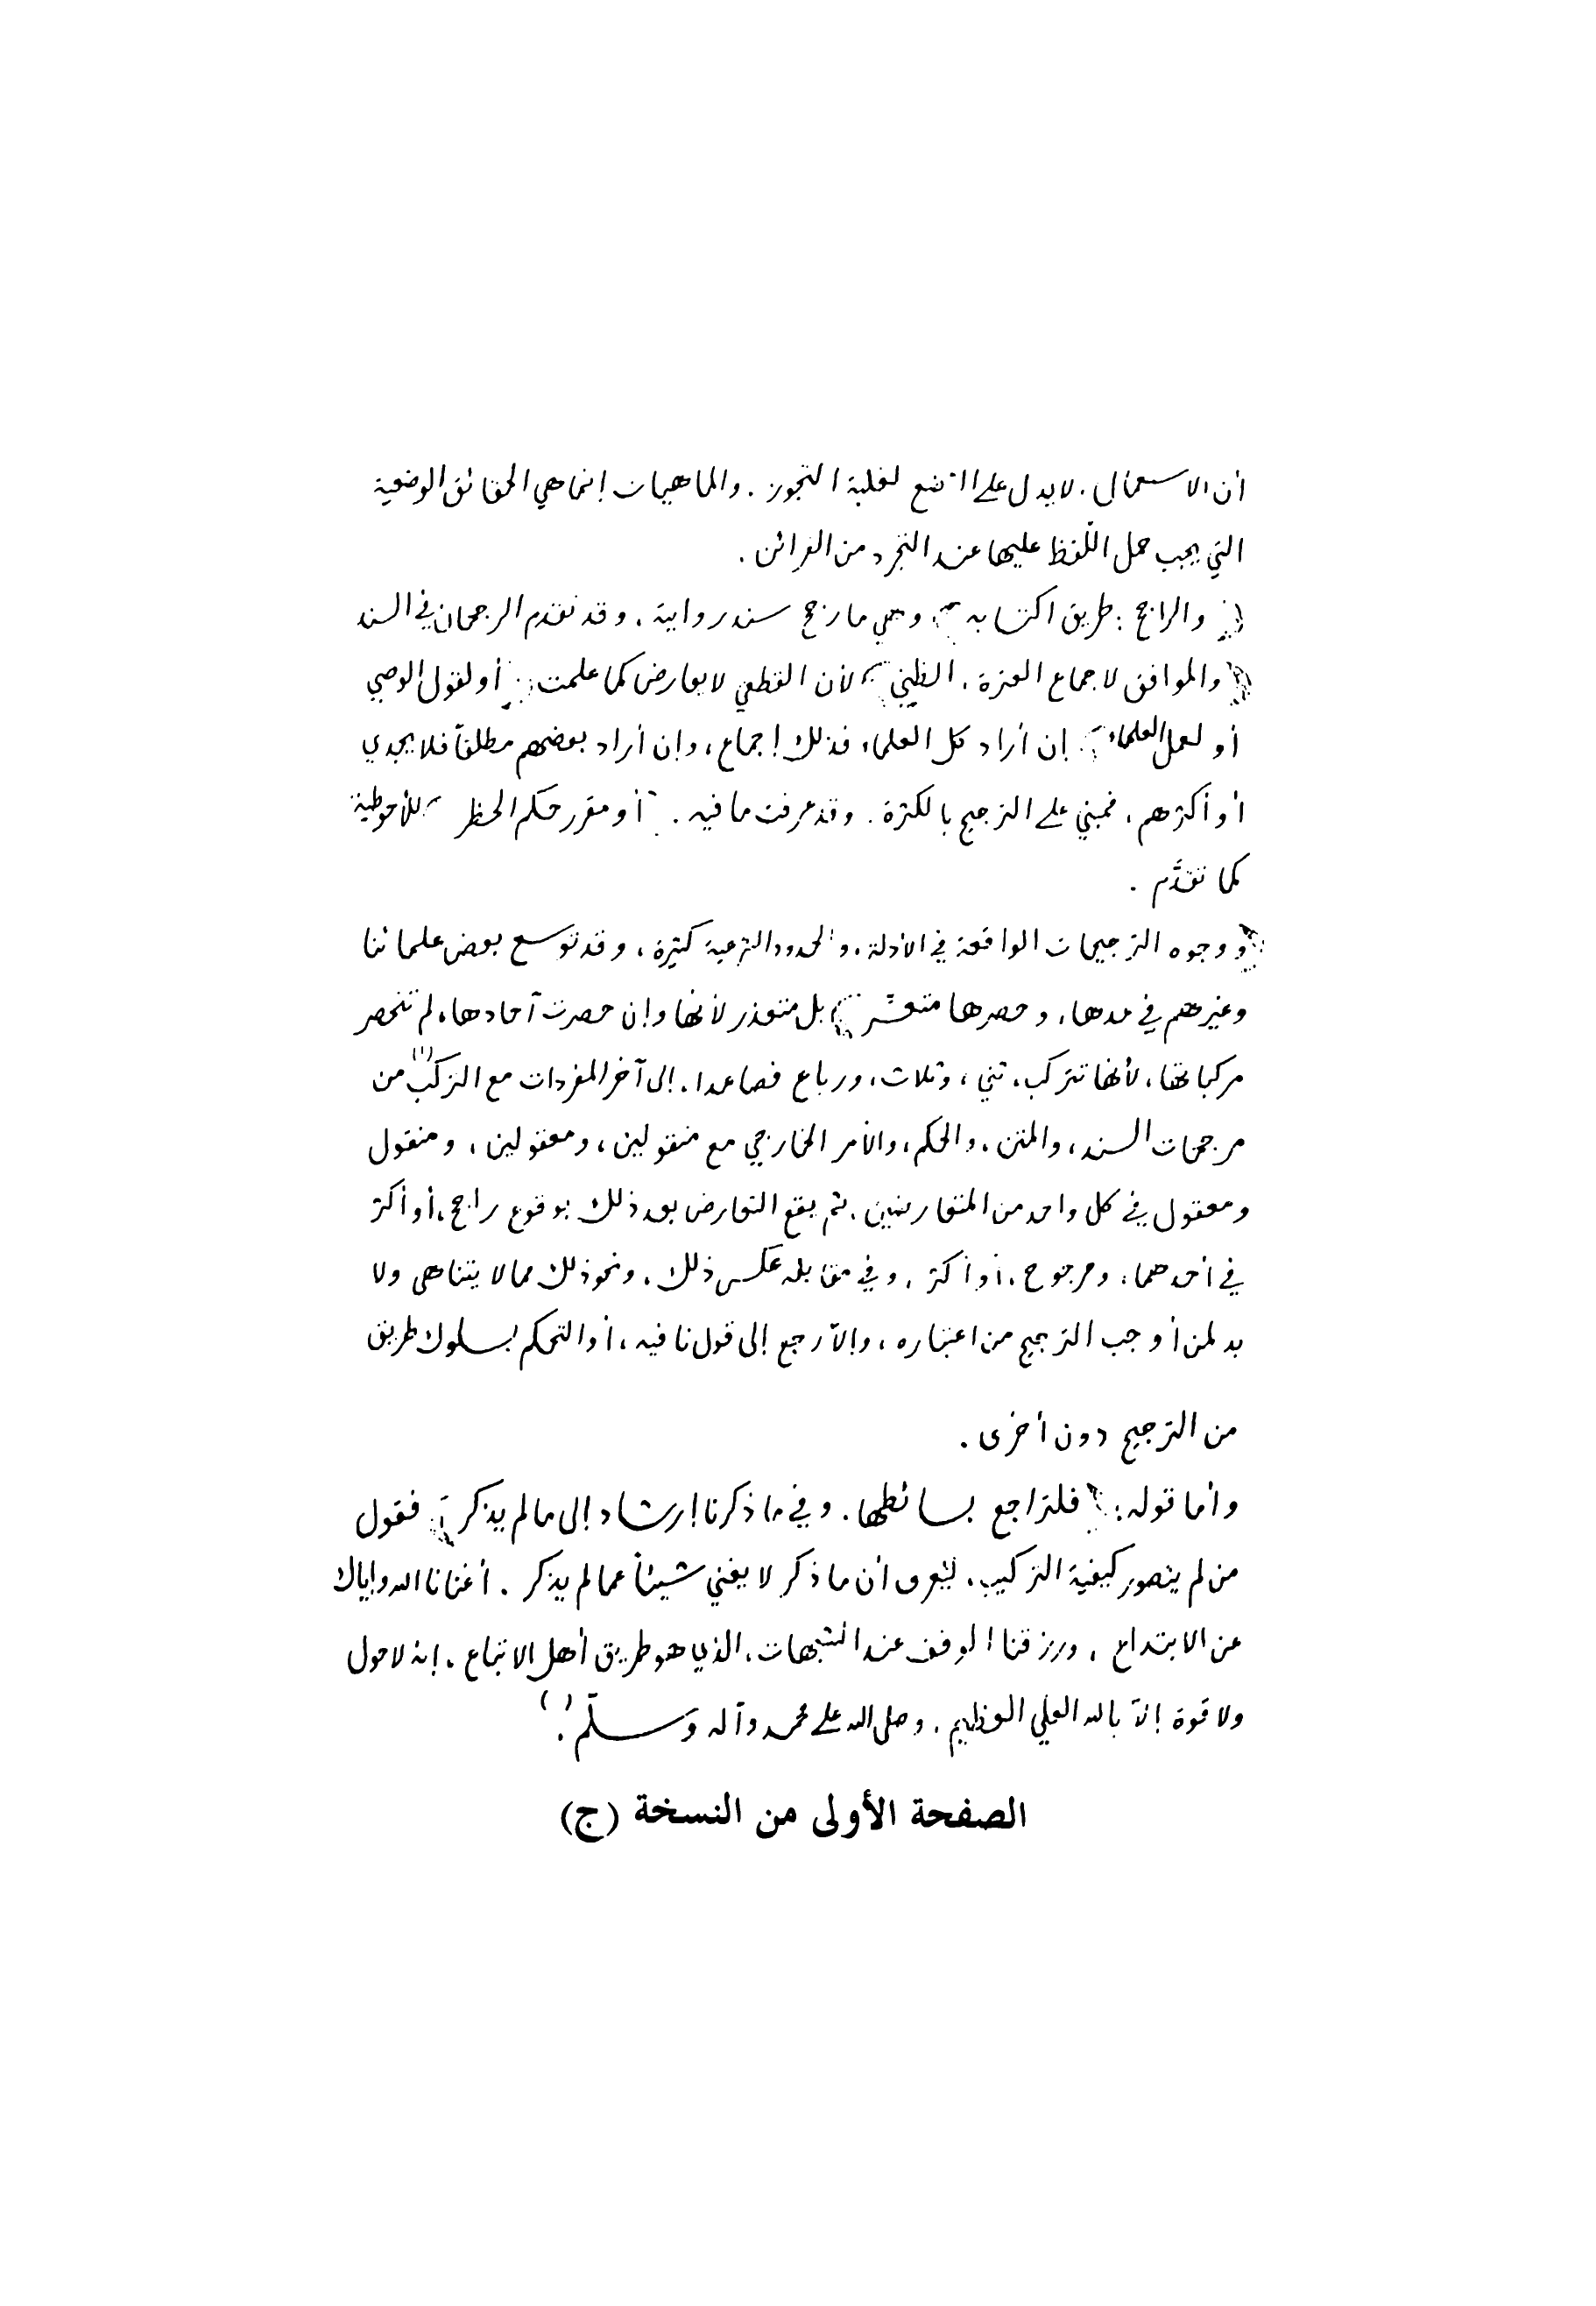 أن الاستعمال. لا يدل على الوضع لغلبة التجوز. والماهيات إنما هي الحقائق الوضعية
التي يجب حمل اللّفظ عليها عند التجرد من القرائن.
والراجح: طريق اكتسابه وهي ما رجح سند روايته. وقد تقدم الرجحان في السند
والموافق لاجماع العترة، الظني لأن القطعي لا يعارض كما علمت أو لقول الوصي
أو لعمل العلماء إن أراد كل العلماء فذلك إجماع، وإن أراد بعضهم مطلقاً فلا يجدي
أو أكثرهم، فمبني على الترجيح بالكثرة. وقد عرفت ما فيه. أو مقرر حكم الحظر للأحوطية
كما تقدَّم.
ووجوه الترجيحات الواقعة في الأدلة، والحدود الشرعية كثيرة، وقد توسع بعض علمائنا
وغيرهم في عدها، وحصرها متعسّر بل متعذر لأنها وإن حصرت آحادها، لم تنحصر
مركباتها، لأنها تتركب، ثنى، وثلاث، ورباع فصاعدا. إلى آخر المفردات مع التركّب(١) من
مرجحات السند، والمتن، والحكم، والأمر الخارجي مع منقولين، ومعقولين، ومنقول
ومعقول في كل واحد من المتعارضين. ثم يقع التعارض بعد ذلك بوقوع راجح، أو أكثر
في أحدهما، ومرجوح، أو أكثر، وفي مقابله عكس ذلك، ونحو ذلك مما لا يتناهى ولا
بد لمن أوجب الترجيح من اعتباره، وإلاّ رجع إلى قول نافيه، أو التحكم بسلوك طريق
من الترجيح دون أخرى.
وأما قوله: فلتراجع بسائطها. وفي ما ذكرنا إرشاد إلى ما لم يذكر فقول
من لم يتصور كيفية التركيب، ليعرف أن ما ذكر لا يغني شيئاً عما لم يذكر. أغنانا الله وإياك
عن الابتداع، ورزقنا الوقف عند الشبهات، الذي هو طريق أهل الاتباع، إنه لا حول
ولا قوة إلاّ بالله العلي العظيم، وصلى الله على محمد وآله وسلّم.
الصفحة الأولى من النسخة (ج)